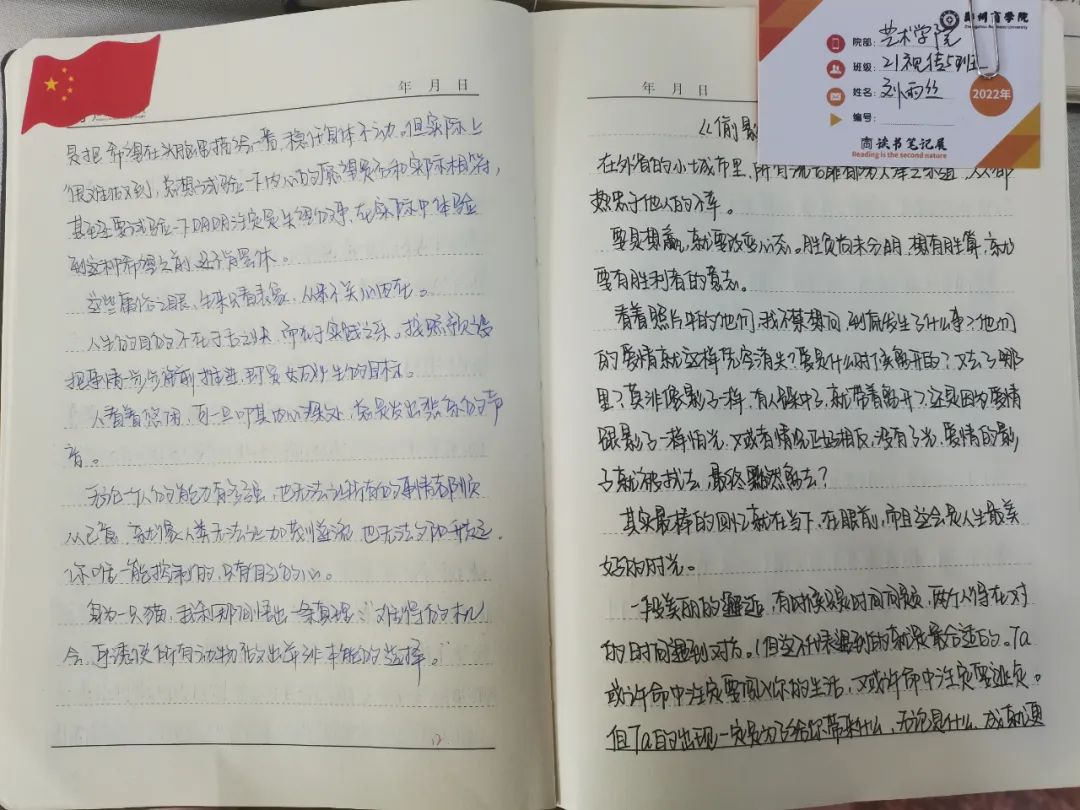 年 月 日
是把希望在头脑里描绘一番，稳住身体不动。但实际上
很难做到，总想试验一下内心的愿望是否和实际相符，
甚至要试验一下DADA注定是失望的事，在实际中体验
到这种希望之前，决不肯罢休。
这些庸俗之眼，生来只看表象，从来不关心内在。
人生的目的不在于
把事情一步步向前推进，即是
人看着悠闲，可一旦叩其内心深处，总是发出悲凉的声
音。
无论一个人的能力有多强，也无法让所有的事情都顺
从己意，就像人类无法让加茂川逆流，也无法
你唯一能控制的，只有自己的心。
身为一只猫，我刹那间悟出一条真理："难得的机
会，会诱使所有动物做出并非本能的选择。
12
年 月 日
《偷影
在外省的小城市里，所有流言
热衷于他人的不幸。
要是想赢，就要改变心态。胜负尚未分明，想有胜算，就
要有胜利者的意志。
看着照片中的他们，我不禁想问，到底发生了什么事？他们
的爱情就这样凭空消失？要是什么时候离开的？又去了哪
里？莫非像影子一样，有人踩中了，就带着离开？还是因为爱情
跟影子一样怕光，又或者情况正好相反，没有了光，爱情的影
子就被拭去，最终黯然离去？
其实最棒的回忆就在当下，在眼前，而且这会是人生最美
好的时光。
一段美丽的邂逅，有时候只是时间问题，两个人得在对
的时间遇到对方。（但这个时候遇到的就是最合适的。Ta
或许命中注定要闯入你的生活，又或许命中注定要
但Ta的出现一定是为了给你带来什么，无论是什么，
郑州商学院
院部：艺术学院
班级：21视传5班
姓名：刘雨丝
编号：
2022年
商读书笔记展
Reading is the second nature